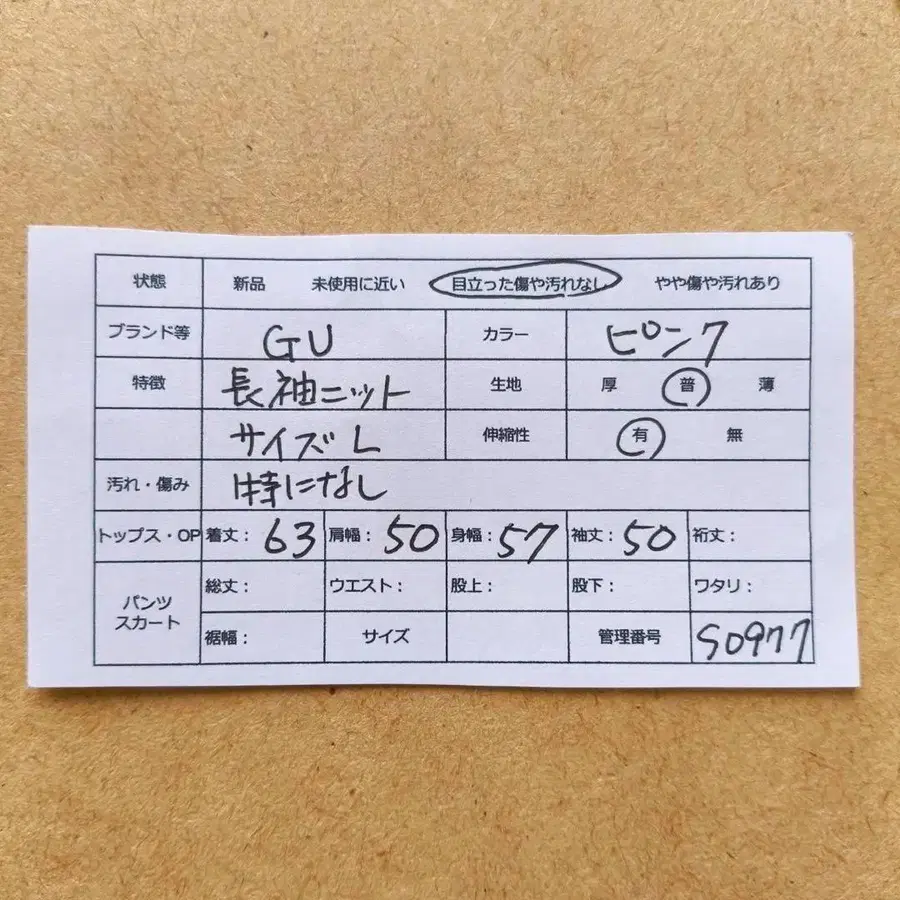 状態 新品 未使用に近い 目立った傷や汚れなし やや傷や汚れあり
ブランド等 GU カラー ピンク
特徴 長袖ニット 生地 厚 普 薄
サイズL 伸縮性 有 無
汚れ・傷み 特になし
トップス・OP 着丈: 63 肩幅: 50 身幅: 57 袖丈: 50 裄丈:
パンツ スカート 総丈: ウエスト: 股上: 股下: ワタリ:
裾幅: サイズ 管理番号 S0977